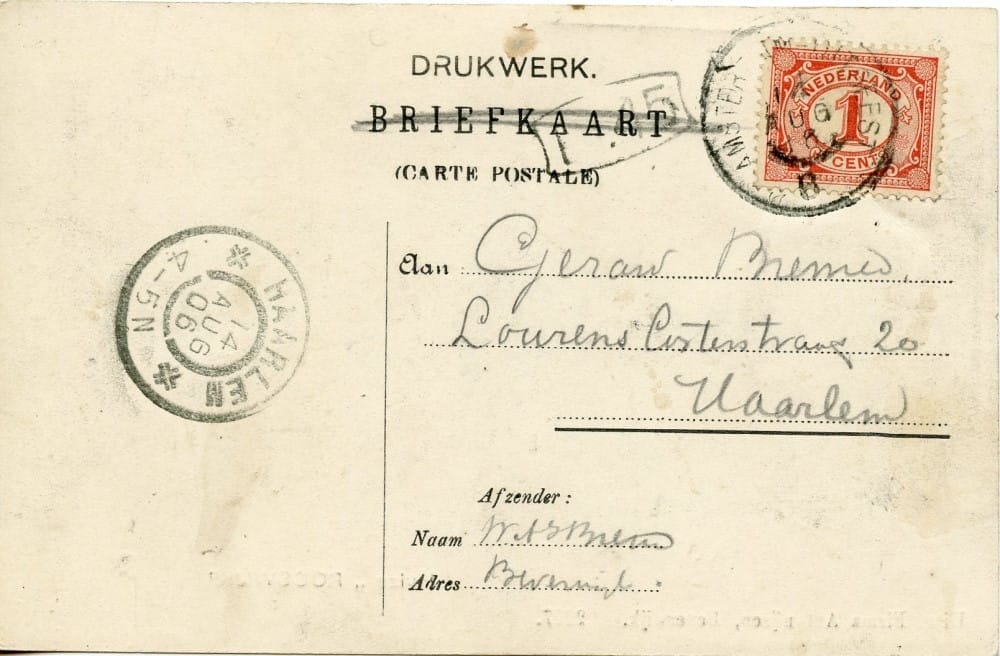 DRUKWERK.
BRIEFKAART
(CARTE POSTALE)
NEDERLAND
1
CENT
AMSTER
HAARLEM
14
AUG
06
4-5N
Aan Gerard Bremer.
Lourens Costerstraat 20
Haarlem
Afzender:
Naam
Adres Beverwijk.